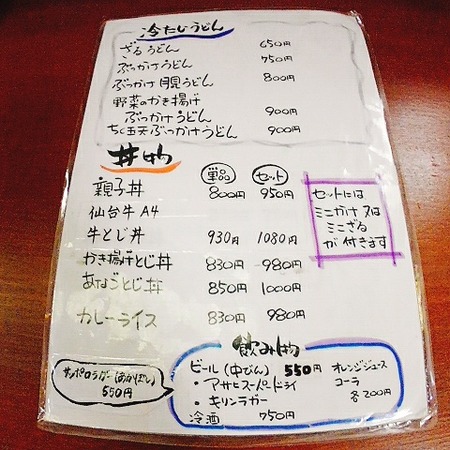 冷たいうどん
ざるうどん 650円
ぶっかけうどん 750円
ぶっかけ月見うどん 800円
野菜のかき揚げ
ぶっかけうどん 900円
ちく玉天ぶっかけうどん 900円
丼もの 単品 セット
親子丼 800円 950円
仙台牛A4
牛とじ丼 930円 1080円
かき揚げとじ丼 830円 980円
あなごとじ丼 850円 1000円
カレーライス 830円 980円
セットには
ミニかけ又は
ミニざる
が付きます
飲み物
ビール(中びん) 550円
・アサヒスーパードライ
・キリンラガー
冷酒 750円
オレンジジュース
コーラ
各200円
サッポロラガー(あかぼし)
550円